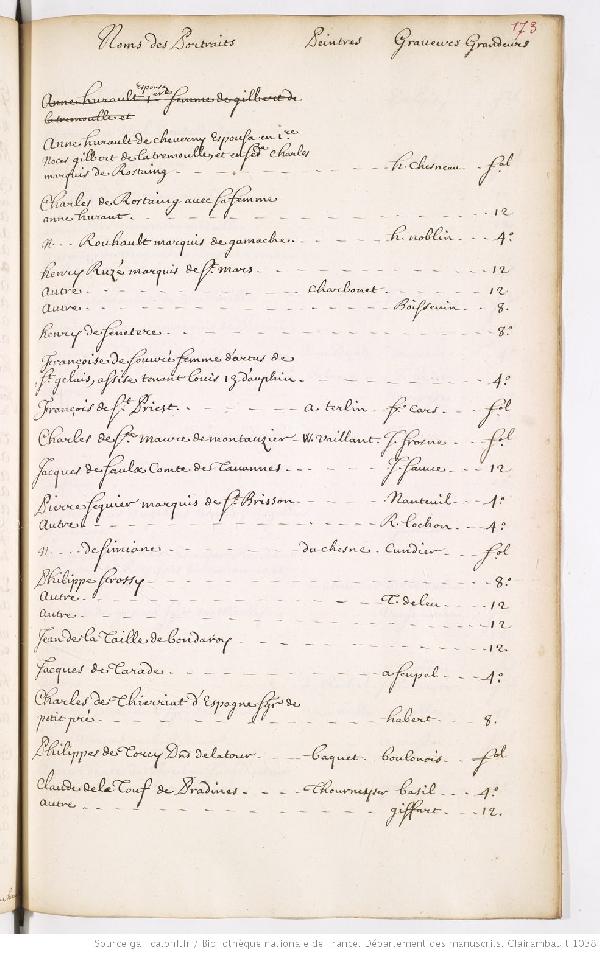 173
Noms des Portraits Peintres Graveurs Grandeurs
Anne hurault Espousa en 1re femme de gilbert de
latremoulle et
Anne hurault de cheverny Espousa en 1.re
Noces gilbert de latremoulle, et en sec.des Charles
marquis de Rostaing - - - h. Chesneau - - fol
Charles de Rostaing avec sa femme
anne huraut - - - 12
N... Rouhault marquis de gamache - - - h. noblin - - - 4.o
henry Ruzé marquis de St. mars - - - 12
Autre - - - Charbonet - - - 12
Autre - - - Boissevin - - 8.
henry de senetere - - - 8.o
Françoise de souvré femme d'artus de
St gelais, assise tenant louis 13 dauphin - - - 4.o
François de St. Priest - - - a. terlin fr. cars - - fol
Charles de Ste. maure de montauzier - W. Vaillant. J. frosne - - fol
Jacques de saulx Comte de Tavannes - - - J. - - 12
Pierre seguier marquis de St. Brisson - - - Nanteuil - - 4.o
Autre - - - R. lochon - - 4.o
N.... de simiane - - - du chesne. Cundier - - fol
Philippe strossy - - - 8.o
Autre - - - T. deleu - - 12
Autre - - - 12
Jean de la Taille de bondaroy - - - 12.
Jacques de Tarade - - - - - 4.o
Charles de Thierriat d'Espagne sgr. de
petit pré - - - habert - - 8.
Philippes de Torcy de latour - - - baquet. boulonois - - fol
Claude de la Touf de Pradines - - - basil - - 4.o
Autre - - - giffart - - 12.
Source gallica.bnf.fr / Bibliothèque nationale de France. Département des manuscrits. Clairambault 1038